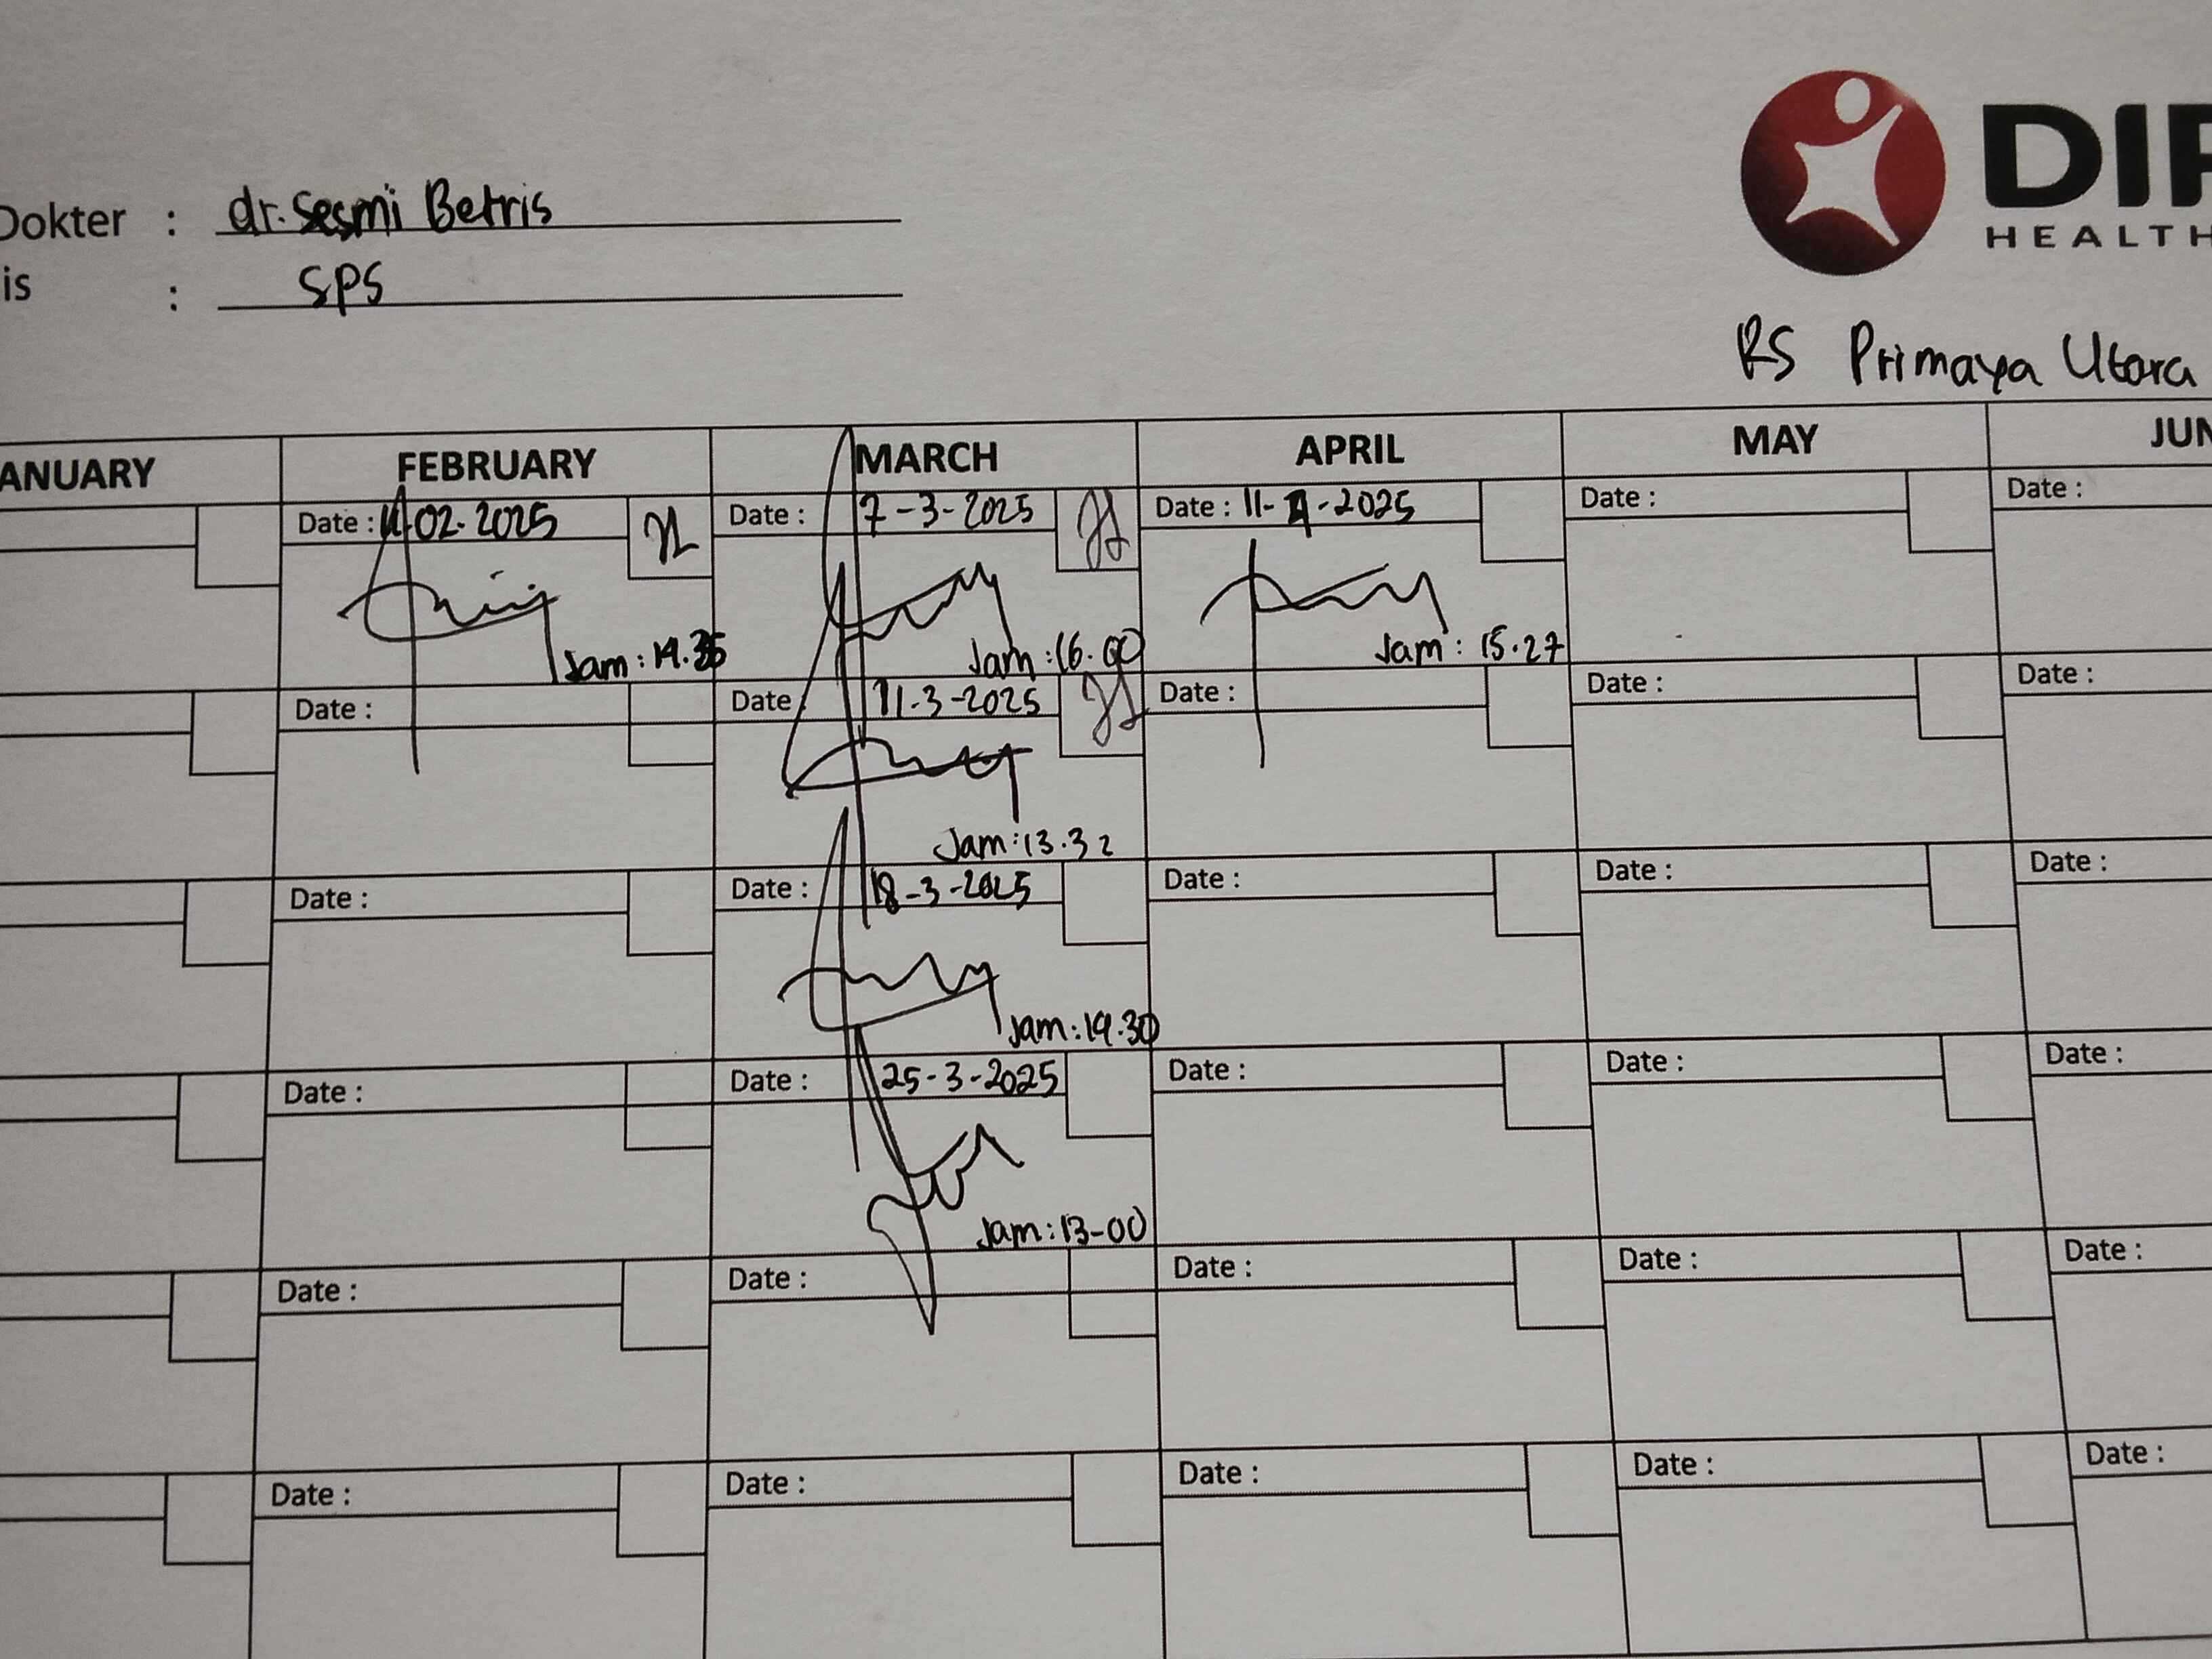 Dokter : dr. Sesmi Betris
is : SPS
DIP
HEALTH
RS Primaya Utara
ANUARY FEBRUARY MARCH APRIL MAY JUN
Date : 02-2025 Date : 7-3-2025 Date : 11-4-2025 Date : Date :
Jam : 16.00 Jam : 15.27
Date : Date : 11-3-2025 Date : Date : Date :
Jam : 13.32
Date : Date : 18-3-2025 Date : Date : Date :
Jam : 19.30
Date : Date : 25-3-2025 Date : Date : Date :
Jam : 13-00
Date : Date : Date : Date : Date :
Date : Date : Date : Date : Date :